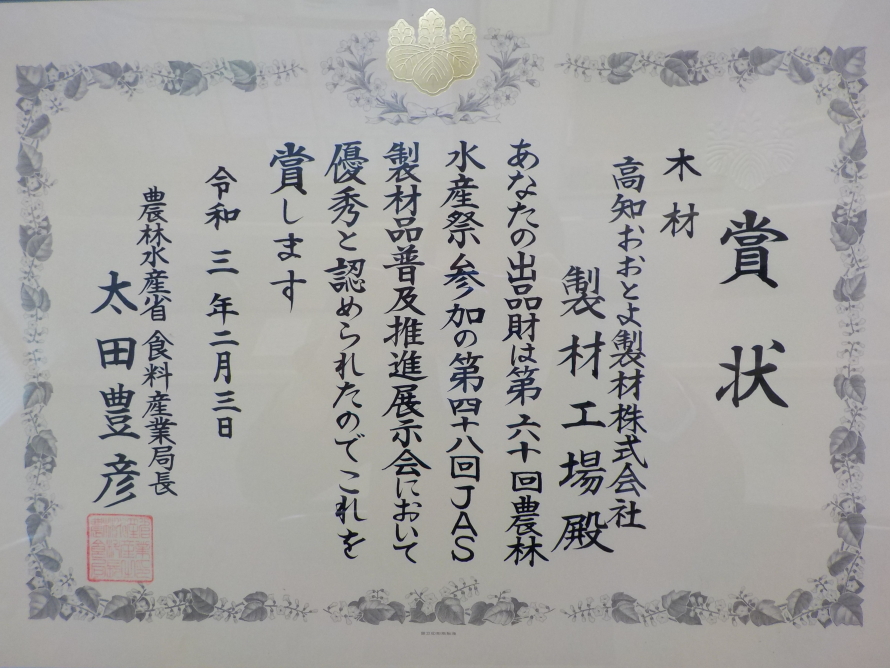 賞状
木材
高知おおとよ製材株式会社
製材工場殿
あなたの出品財は第六十回農林
水産祭参加の第四十八回JAS
製材品普及推進展示会において
優秀と認められたのでこれを
賞します
令和三年二月三日
農林水産省食料産業局長
太田豊彦